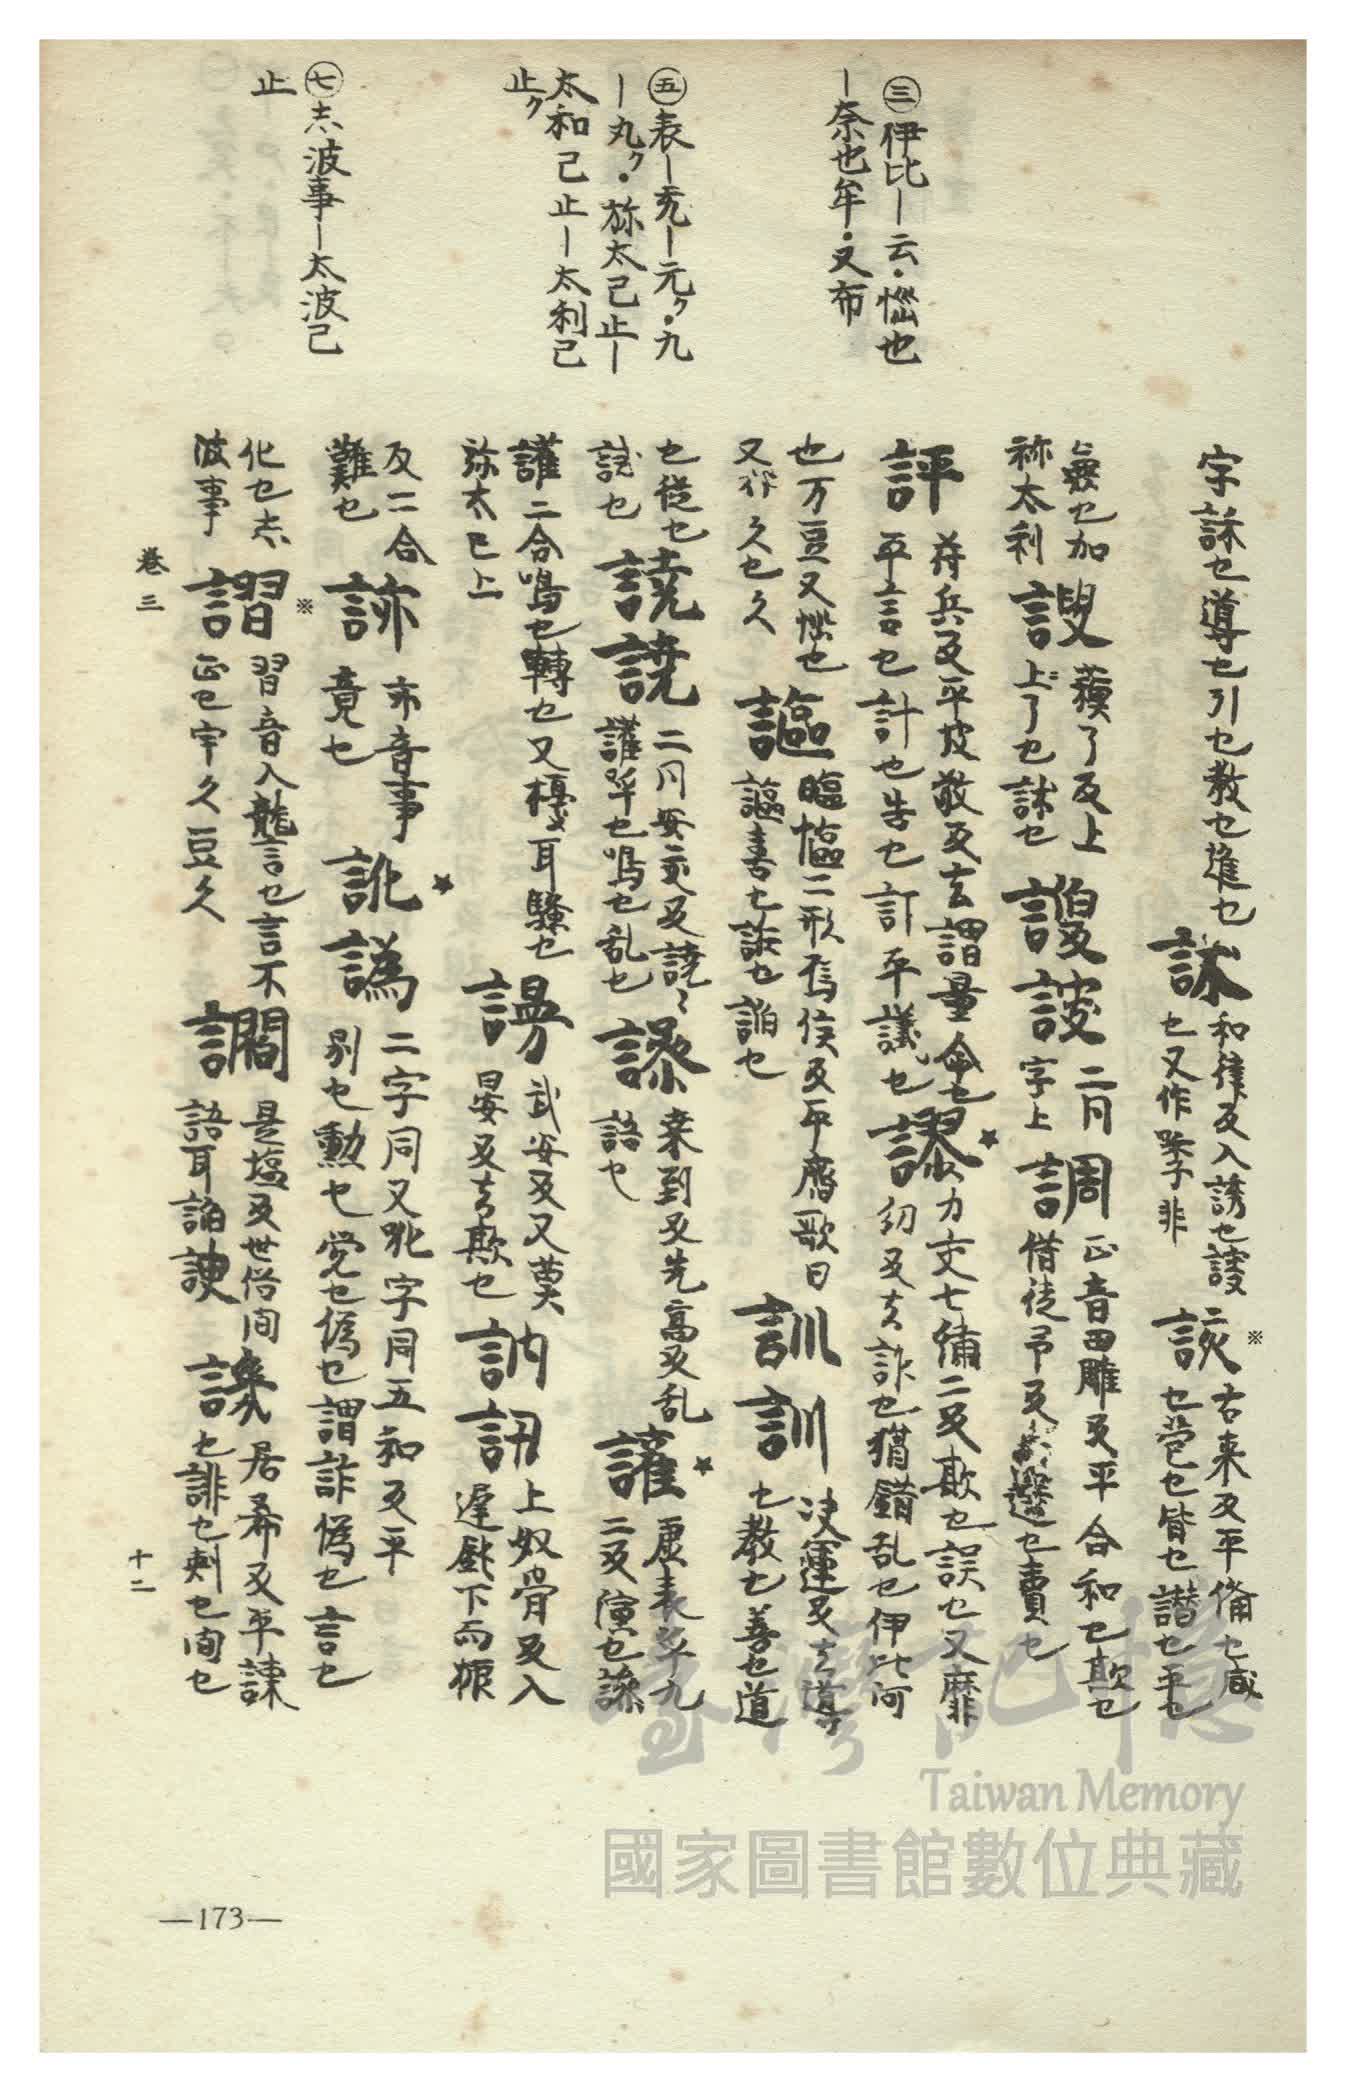 ㊂伊比ー云·惱也
ー奈也牟·又布
㊄表ー売ー元ク·九
ー丸ク·祢太己止ー
太和己止ー太利己
止ク
㊆志波事ー太波己
止
字訹也導也引也教也進也
訹 和律反入誘也謏
也又作 非
※
該 古来反平備也咸
也營也皆也譛也平也
無也加
祢太利
謏 蘓了反上
上了也訹也
二同
字上
調 正音田雕反平合和也欺也
借徒予反 選也賣也
評 苻兵反平皮敬反去謂量命也
平言也計也告也訂平議也
謬 力交七備二反欺也誤也又靡
幼反去詐也猶錯乱也伊比何
也万豆又惱也
又 久也久
謳 二形烏侯反平齊歌曰
謳喜也 也 也
訓訓 決運反去導
也教也善也道
也従也
也
譊譊 二同女交反譊〻
讙呼也鳴也乱也
譟 桒到反先高反乱
語也
讙 虚表呼九
二反演也譟
讙二合鳴也轉也又擾耳騒也
祢太己上
謾 武安反又莫
晏反去欺也
訥 上奴骨反入
遅 下而振
反二合
難也
亦音事
竟也
訛譌 二字同又吪字同五和反平
別也動也覚也偽也謂詐偽也言也
化也志
波事
謵 習音入 言也言不
正也宇久豆久
讇 是塩反世俗間
語耳諂諛
譏 居希反平諫
也誹也刺也間也
卷三
十二
—173—
臺灣記憶
Taiwan Memory
國家圖書館數位典藏